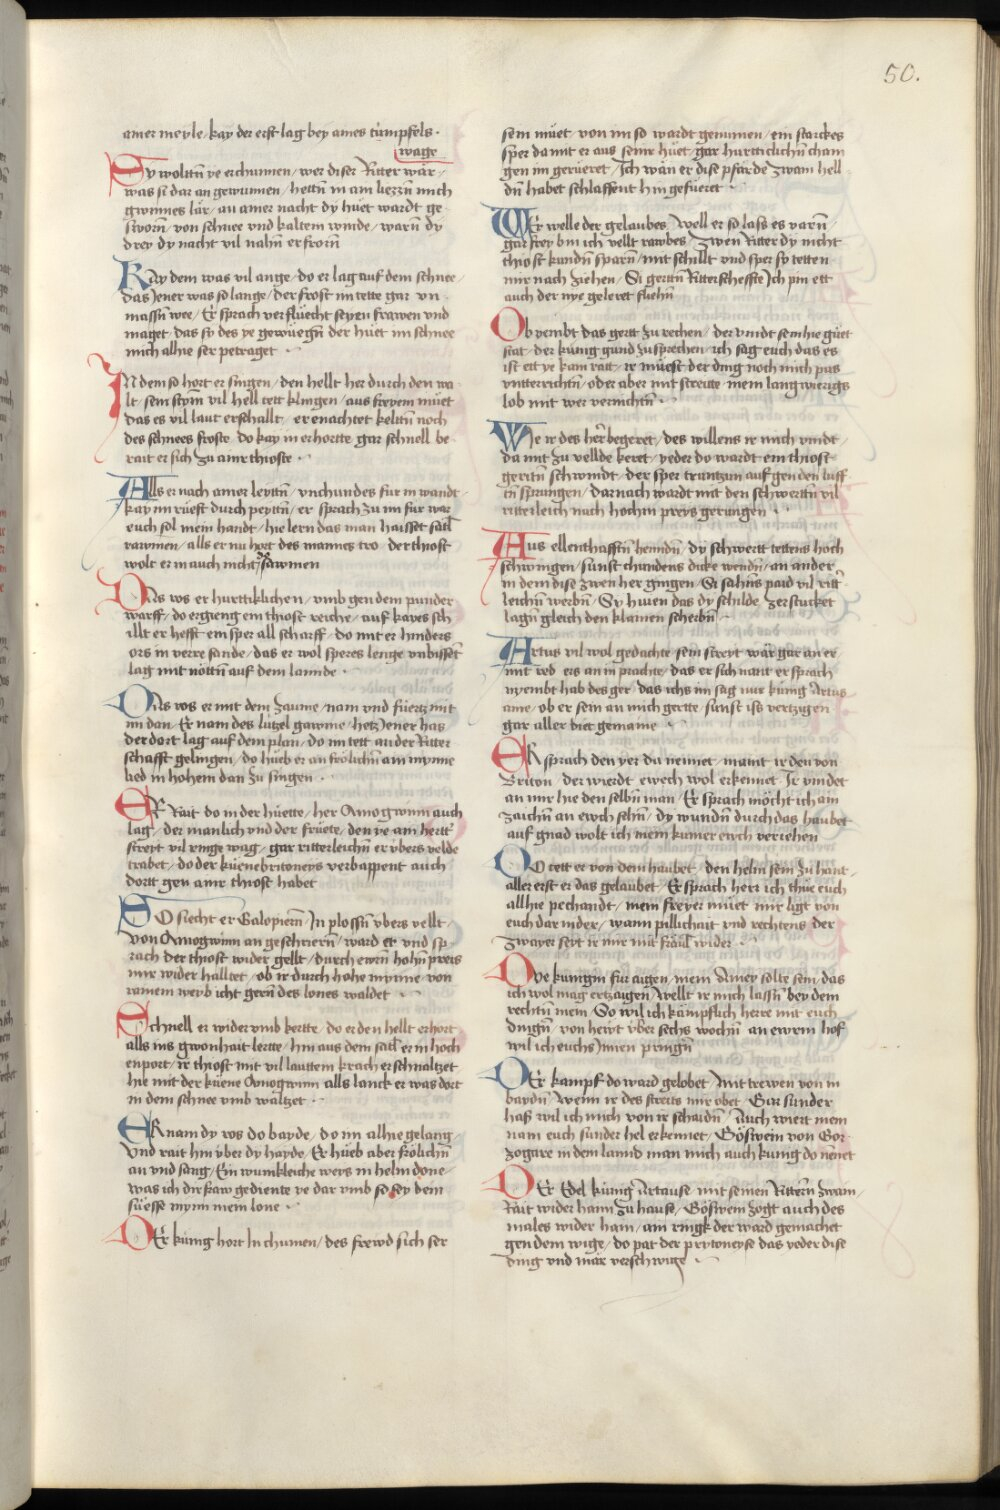 50.
amer meyle / kay der erst lag bey aines tümpfels ·
wage
Sy woltñ ye erchunnen / wer diser Ritter wär /
was si dar an gewunnen / hettñ in am herzñ mich
gwinnes lär / an amer nacht dy hüet wardt ge
sworñ / von schnee vnd kaltem winde / warñ dy
drey dy nacht vil nahñ erfrorñ
Kay dem was vil ange / do er lag auf dem schnee /
das Jener was so lange / der frost im tette gar vn
massñ wee / Er sprach verflüecht seyen frawen vnd
maget / das sy des ye gewüegñ der hüet im schnee
mich alhie ser petraget ·
In dem so hort er singen / den hellt her durch den wa
lt / sein stym vil hell tett klingen / aus freyem müet
das es vil laut erschallt / er enachtet keltñ noch
des schnees froste / do kay in erhortte gar schnell be
rait er sich zu ainr thioste ·
Alls er nach amer leyttñ / vnchundes für in wandt /
kay im rüest durch peyttñ / er sprach zu im für war
euch sol mein handt / hie lern das man haisset satl
rawmen / alls er nu hort des mannes tro / der thiost
wolt er in auch nicht sawmen
Das ros er hurttiklichen / vmb gen dem punder
warff / do ergieng ein thiost reiche / auf kayes sch
illt er hefft ein sper all scharff / do mit er hinders
ors in verre sande / das er wol speres lenge vnbisset
lag mit nöttñ auf dem lannde ·
Das ros er mit dem zaume / nam vnd füertz mit
im dan / Er nam des lützel gawme / hetz Jener has
der dort lag auf dem plan / do im tett an der Ritter
schafft gelingen / do hueb er an frölichñ am mynne
lied in hohem dan zu singen ·
Er Rait do in der hüette / her Amogwinn auch
lag / der manlich vnd der früete / den ye am hertt
streyt vil ringe wag / gar ritterleichñ er vbers velde
trabet / do der küenebritoneys verbappent auch
dortt gen ainr thiost habet
Do siecht er Galopierñ / In plossñ vbers vellt /
von Amogwinn an geschrierñ / ward er vnd sp
rach der thiost wider gellt / durch ewrñ hohñ preis
mir wider halltet / ob ir durch hohe mynne von
rainem weyb icht gerñ des lones waldet ·
Schnell er wider vmb kertte / do er den hellt erhort
alls ins gwonhait lertte / hin aus dem satl er in hoch
enport / ir thiost mit vil lauttem krach er schnaltzet
hie mit der küene Amogwinn alls lanck er was dort
in dem schnee vmb waltzet ·
Er nam dy ros do bayde / do im alhie gelang /
Vnd rait hin yber dy hayde / Er hueb aber frölichñ
an vnd sang / Ein wunnkleiche weys in helm done /
was ich dir fraw gediente ye dar vmb so sey dein
süesse mynn mein lone ·
Der künig hort In chumen / des frewd sich ser
sein müet / von im so wardt genumen / ein starckes
sper da mit er aus seinr hüet / gar hurtticlichñ cham
gen im gerüeret / Ich wän er dise pfärde zwain hell
dñ habet schlaffent hin gefüeret ·
Wer welle der gelaubes / Well er so lass es varñ /
gar frey bin ich vellt rawbes / Zwen Ritter dy nicht
thiost kundñ sparñ / mit schillt vnd sper sy tetten
mir nach ziehen / Si gertñ Ritterscheffte / Ich pin ett
auch der nye geleret fliehñ
Ob yembt das gertt zu rechen / der vindt sein hie güet
stat / der künig gund zusprechen / ich sag euch das es
ist ett ye kam ratt / ir müest der ding noch mich pas
vntterrichtñ / oder aber mit streitte / mein langwierigs
lob mit wer vernichtñ ·
Wie ir des her begeret / des willens ir mich vindt /
da mit zu vellde keret / yeder do wardt ein thiost
gerittñ schwindt / der sper trunzun auf gen den luff
tñ sprungen / darnach wardt mit den schwerttñ vil
ritterleich nach hochm preys gerungen ·
Aus ellenthafftñ henndñ / dy schwertt tettens hoch
schwingen / sünst chundens dicke wendñ / an ander
in dem dise zwen her gingen / Si sahñs paid vil ritt
leichñ werbñ / Sy hiuen das dy schilde zerstucket
lagñ gleich den klainen scherbñ ·
Artus vil wol gedachte / sein streyt wär gar an er /
mit red ers an in prachte / das er sich nant er sprach
nyembt hab des ger / das ichs im sag nur künig Artus
aine / ob er sein an mich gertte / sünst ist vertzigen
gar aller diet gemaine ·
Er sprach den yer da nennet / maint ir den von
Briton / der wierdt ewech wol erkennet / Ir vindet
an mir hie den selbñ man / Er sprach möcht ich am
zaichñ an ewch sehñ / dy wundñ durch das haubet
auf gnad wolt ich mein kumer ewch veriehen
Do tett er von dem haubet / den helm sein zu hant /
aller erst er das gelaubet / Er sprach herr ich thüe euch
allhie pechandt / mein freyer müet mir ligt von
euch dar nider / wann pillichait vnd rechtens der
zwayer seyt ir mir mit fräul wider ·
Dye künigin für aigen / mein Amey sölte sein / das
ich wol mag ertzaigen / Wellt ir mich lassñ bey dem
rechtñ mein / So wil ich kämpflich herre mit euch
dingñ / von hewt vber sechs wochñ an ewrem hof
wil ich euchs Innen pringñ
Der kampf do ward gelobet / Mit trewen von in
baydñ / Wenn ir des streits mir obet / Gar sunder
haß wil ich mich von ir schaidñ / Auch wiert mein
nam euch sunder hel erkennet / Göswein von Gor
zogare in dem lannd man mich auch künig do nennet
Der Edel künig Artause / mit seinen Rittern zwain /
Rait wider haim zu hause / Göswein zogt auch des
males wider hain / am ringk der ward gemachet
gen dem wige / do pat der prytoneyse das yeder dise
ding vnd mär verschwige ·